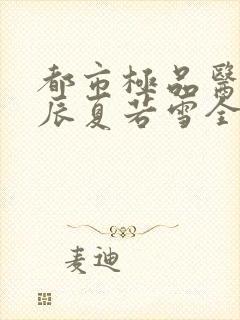 都市極品醫
辰夏若雪全
麦迪